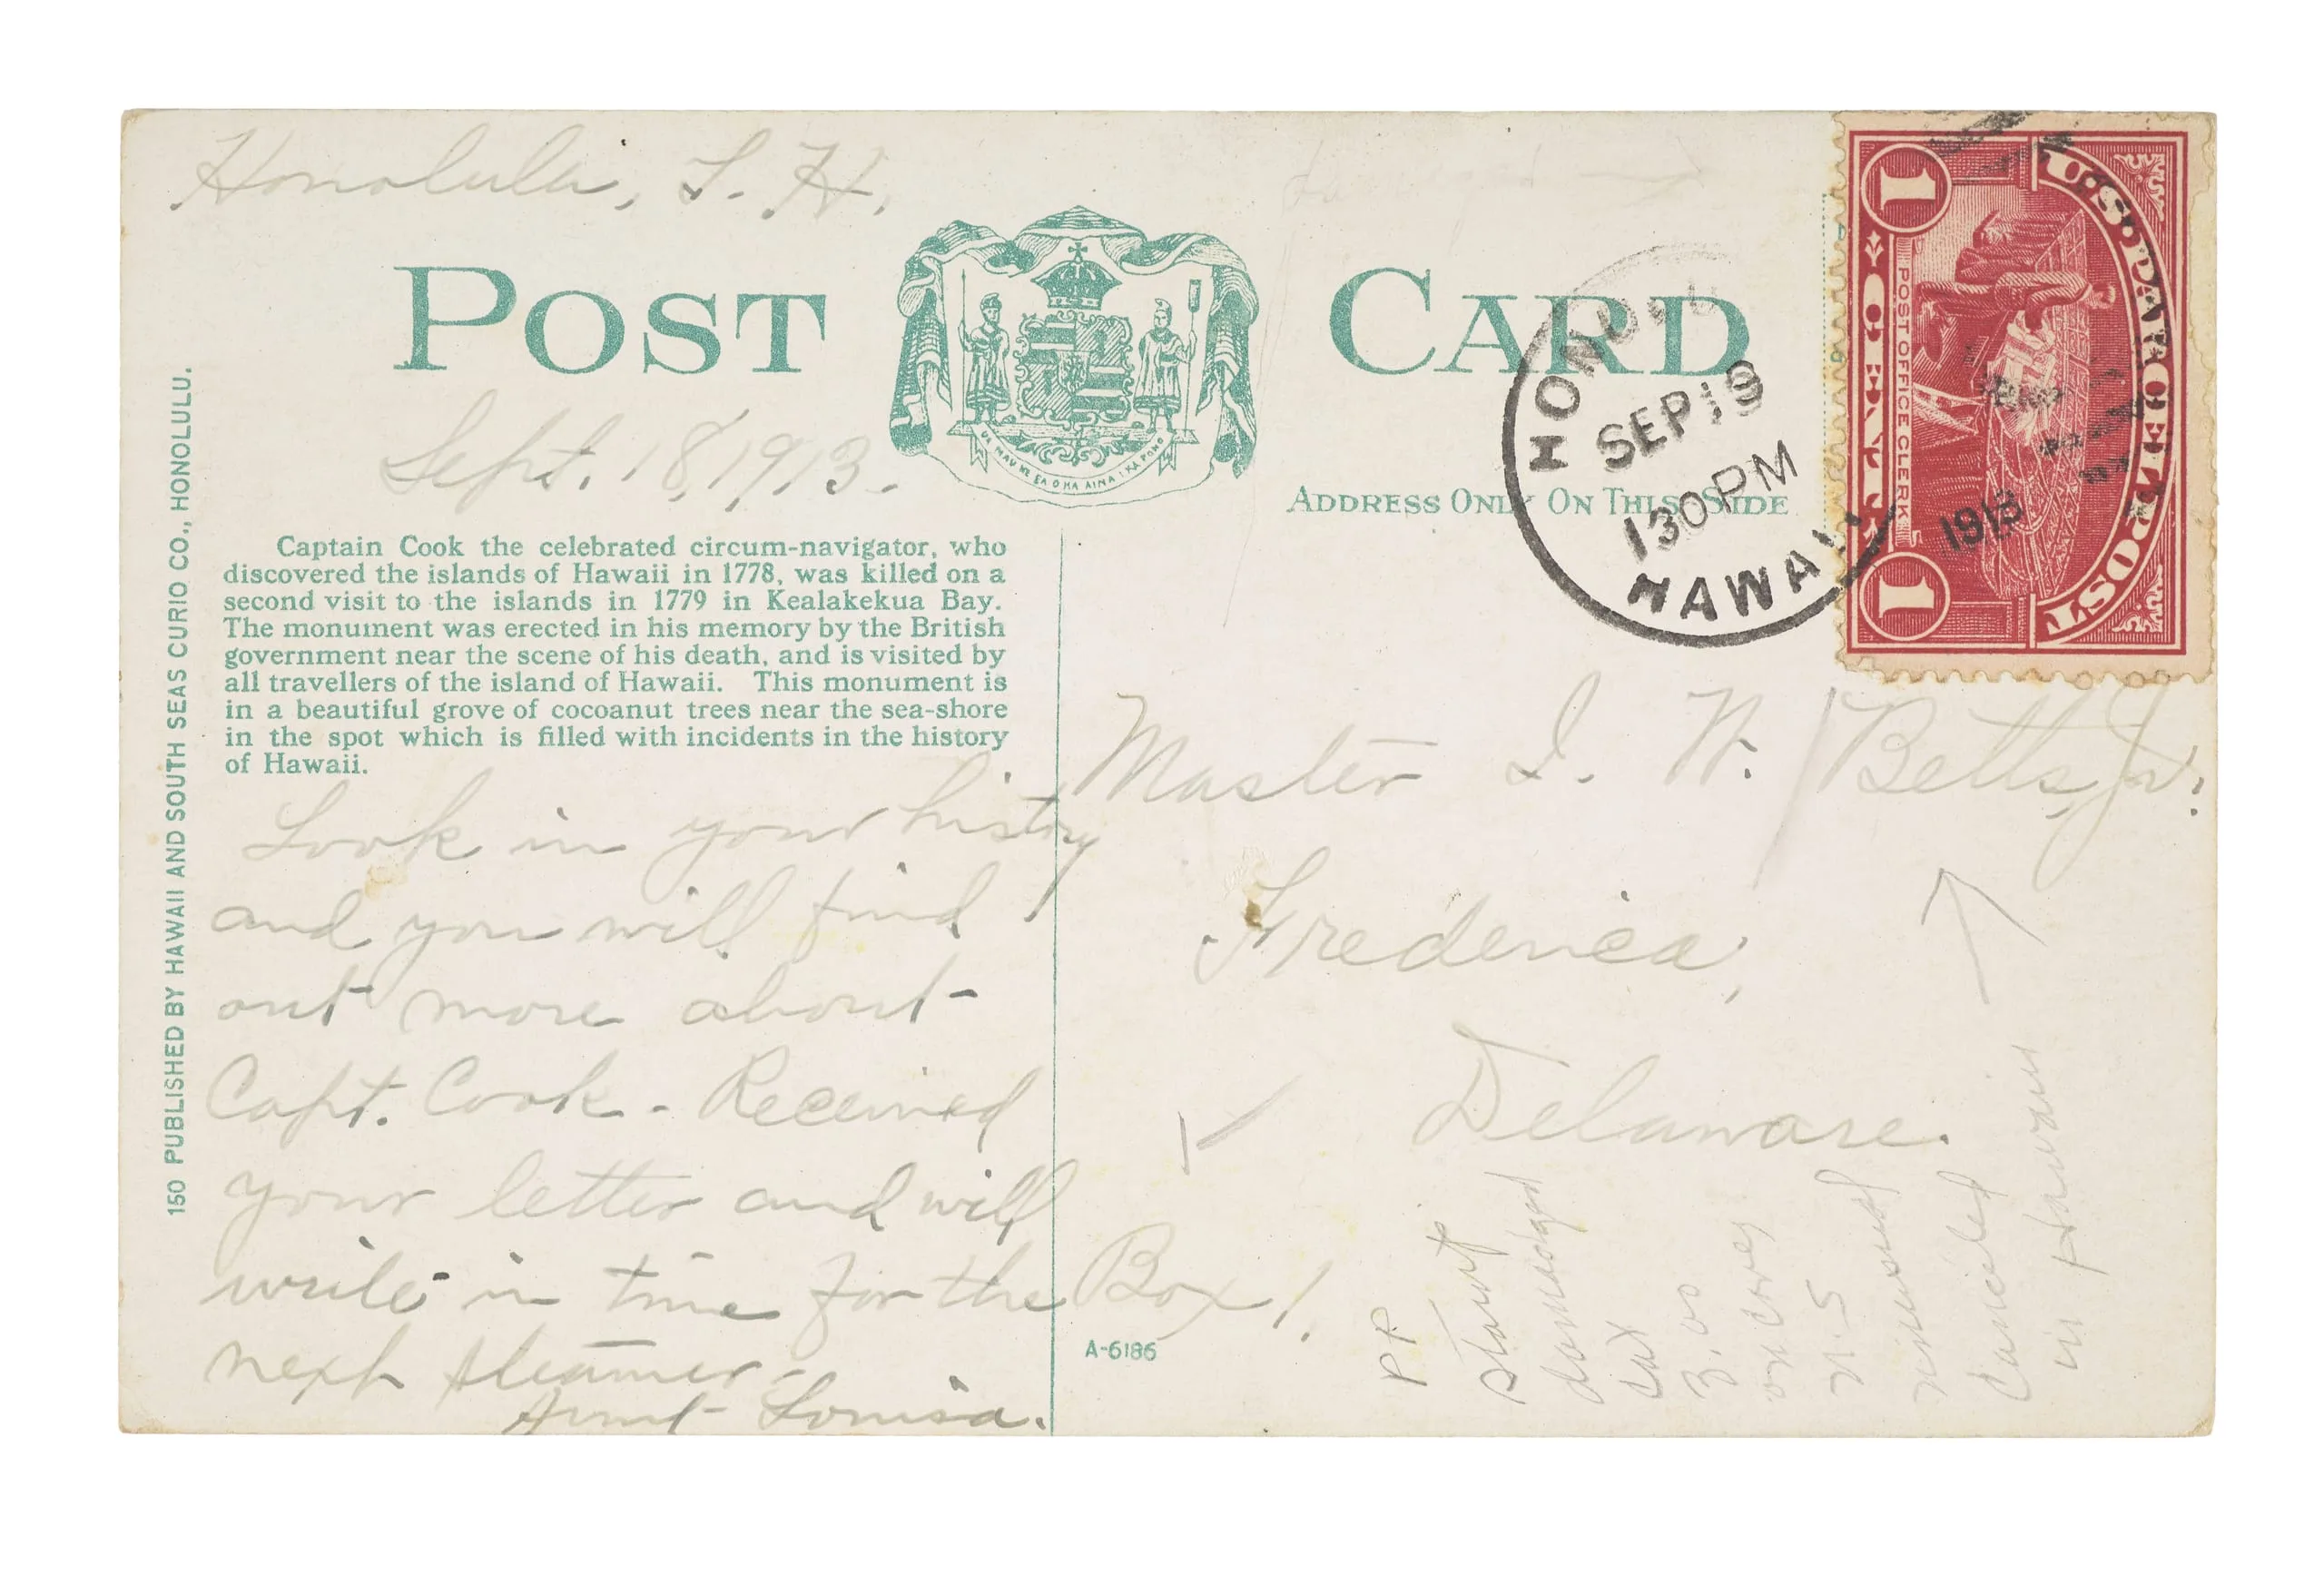 Honolulu, T. H.
POST CARD
Sept. 18, 1913.
ADDRESS ONLY ON THIS SIDE
UA MAU KE EA O KA AINA I KA PONO
HONOLULU
SEP 19
130 PM
HAWAII
1913
U.S. PARCEL POST
POST OFFICE CLERK
1 CENT 1
150 PUBLISHED BY HAWAII AND SOUTH SEAS CURIO CO., HONOLULU.
Captain Cook the celebrated circum-navigator, who
discovered the islands of Hawaii in 1778, was killed on a
second visit to the islands in 1779 in Kealakekua Bay.
The monument was erected in his memory by the British
government near the scene of his death, and is visited by
all travellers of the island of Hawaii. This monument is
in a beautiful grove of cocoanut trees near the sea-shore
in the spot which is filled with incidents in the history
of Hawaii.
Look in your history
and you will find
out more about
Capt. Cook - Received
your letter and will
write in time for the
next steamer -
Aunt Louisa.
Master I. W. Betts, Jr.
Frederica,
Delaware.
Box 1.
A-6186
PP
stamp
damaged
cat
3.00
on cover
canceled
in Hawaii